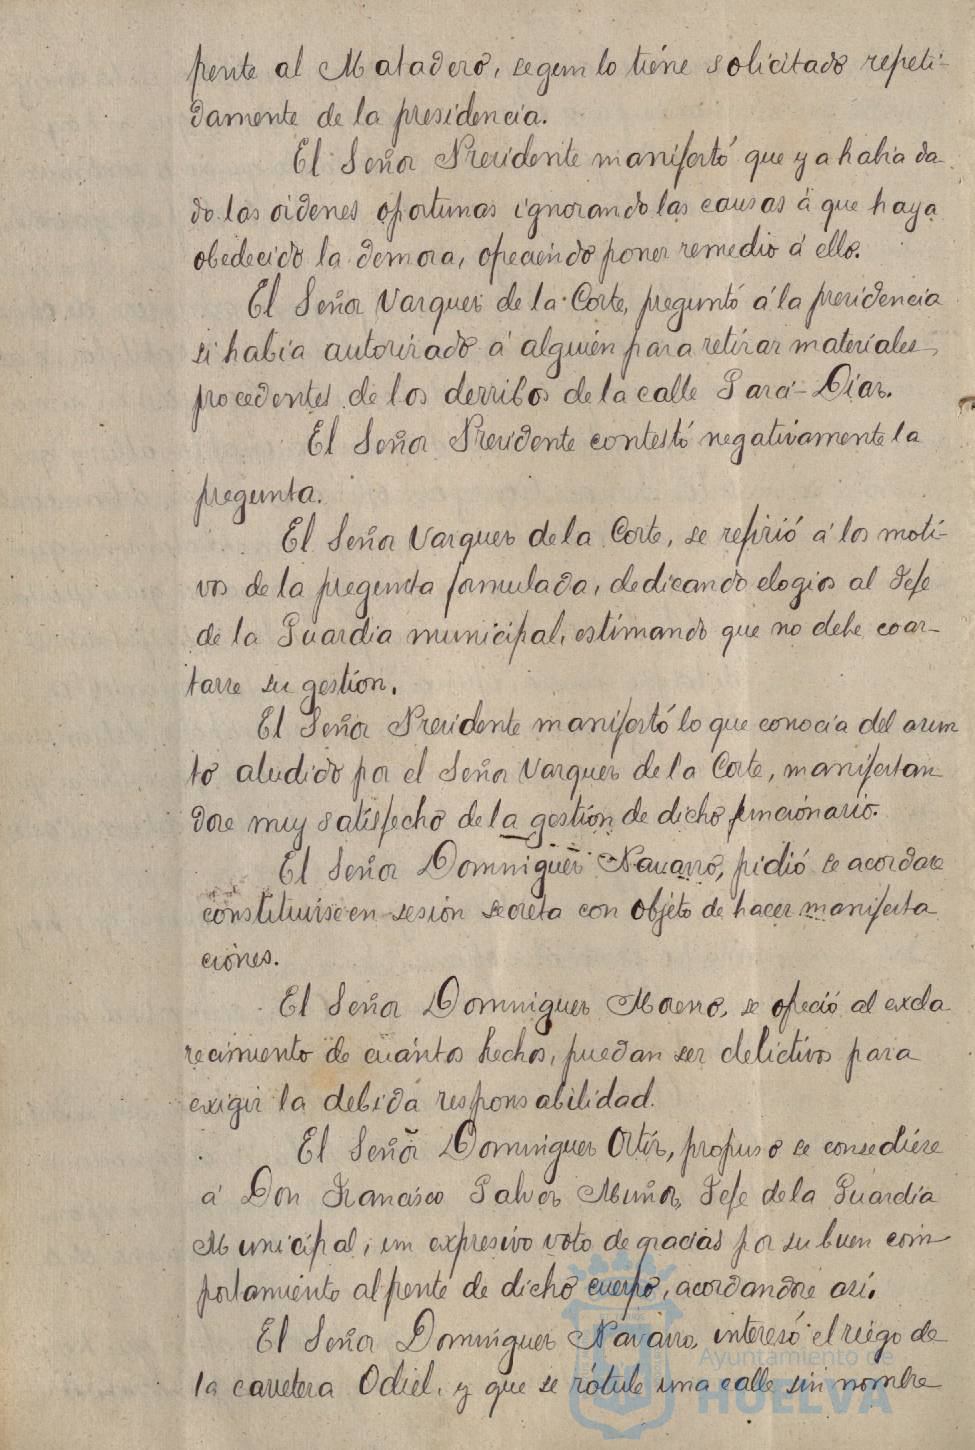 frente al Matadero, segun lo tiene solicitado repeti-
damente de la presidencia.
El Señor Presidente manifestó que ya habia da
do las ordenes oportunas ignorando las causas á que haya
obedecido la demora, ofreciendo poner remedio á ello.
El Señor Vazquez de la Corte, preguntó á la presidencia
si habia autorizado á alguien para retirar materiales
procedentes de los derribos de la calle Garci-Diaz.
El Señor Presidente contestó negativamente la
pregunta.
El Señor Vazquez de la Corte, se refirió á los moti-
vos de la pregunta formulada, dedicando elogios al Jefe
de la Guardia municipal, estimando que no debe coar-
tarse su gestion.
El Señor Presidente manifestó lo que conocia del asun
to aludido por el Señor Vazquez de la Corte, manifestan
dose muy satisfecho de la gestion de dicho funcionario.
El Señor Dominguez Navarro, pidió se acordase
constituirse en sesion secreta con objeto de hacer manifesta
ciones.
El Señor Dominguez Moreno, se ofreció al escla
recimiento de cuantos hechos, puedan ser delictivos para
exigir la debida responsabilidad.
El Señor Dominguez Ortiz, propuso se consediese
á Don Francisco Galvez Muñoz, Jefe de la Guardia
Municipal, un expresivo voto de gracias por su buen com
portamiento al frente de dicho cuerpo, acordandose asi.
El Señor Dominguez Navarro, interesó el riego de
la carretera Odiel, y que se rótule una calle sin nombre
Ayuntamiento de
HUELVA